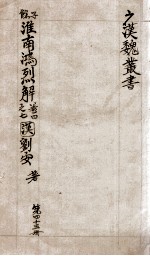 漢魏叢書
子餘
淮南鴻烈解
卷四之七
漢劉安著
第四十三冊